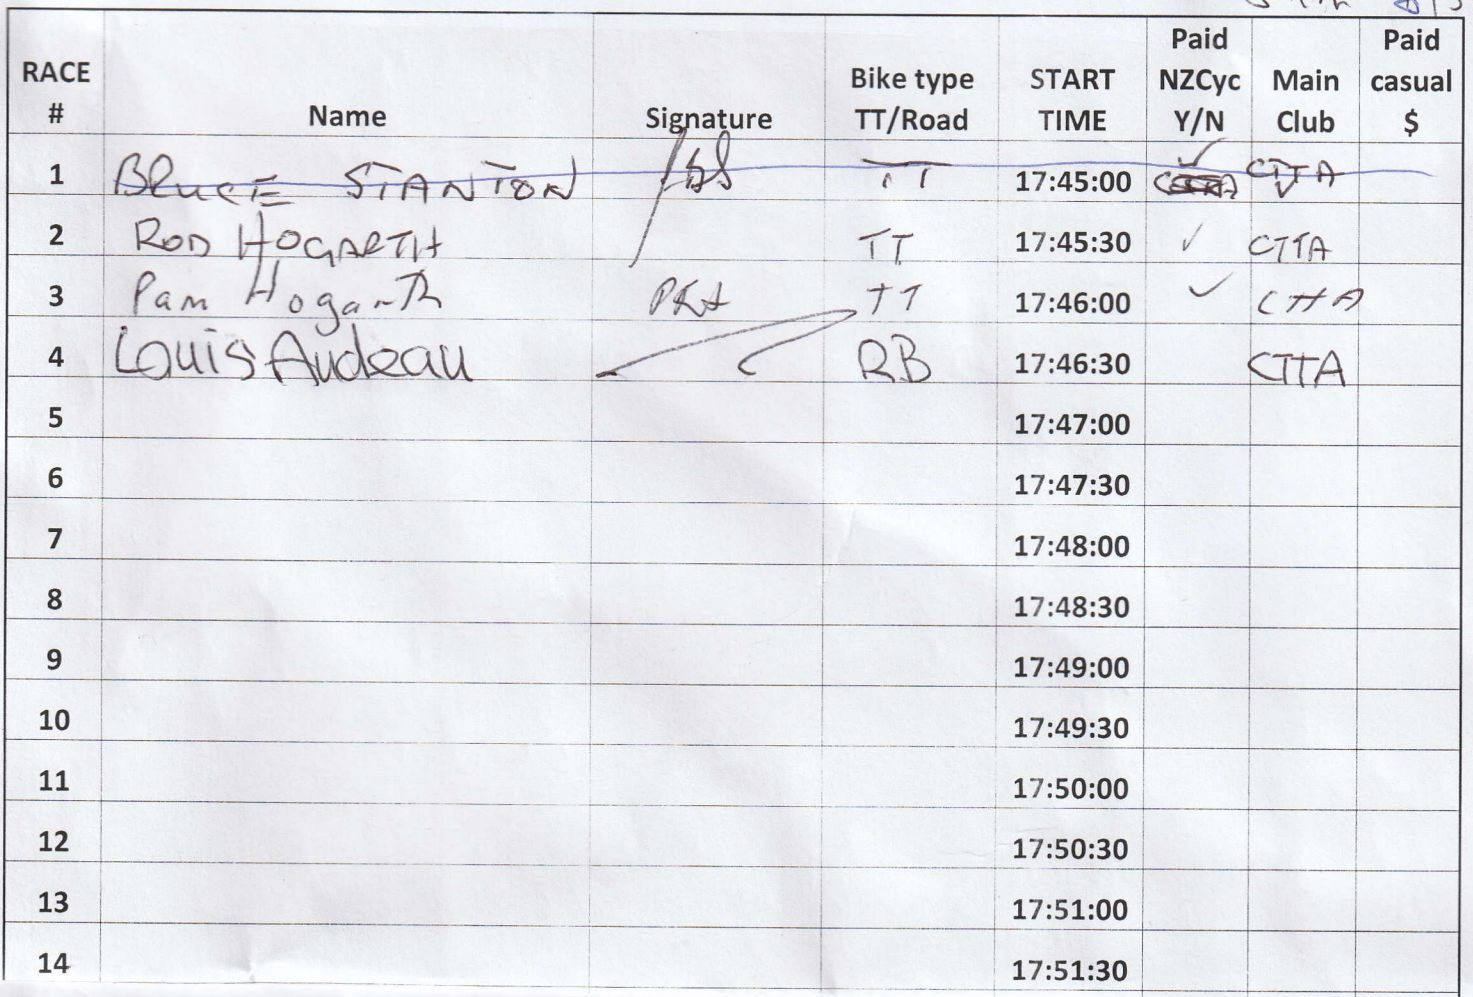 RACE # Name Signature Bike type TT/Road START TIME Paid NZCyc Y/N Main Club Paid casual $
1 BRUCE STANTON TT 17:45:00 ✓ CTTA ✓
2 ROD HOGARTH TT 17:45:30 ✓ CTTA
3 Pam Hogarth PKH TT 17:46:00 ✓ CTTA
4 Louis Audeau RB 17:46:30 CTTA
5 17:47:00
6 17:47:30
7 17:48:00
8 17:48:30
9 17:49:00
10 17:49:30
11 17:50:00
12 17:50:30
13 17:51:00
14 17:51:30